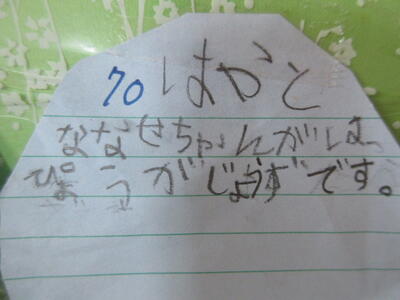 70 はかと
ななせちゃんがは、
ぴょうがじょうずです。